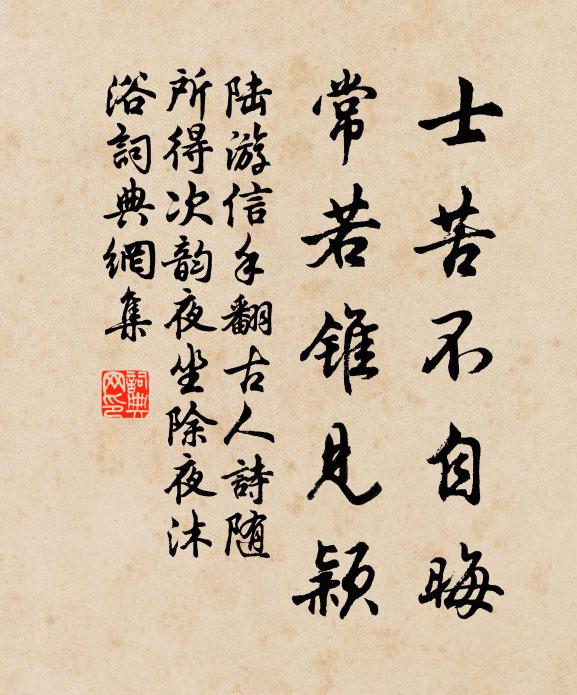 士苦不自晦
常若锥见颖
陆游信手翻古人詩随
所得次韵夜坐除夜沐
浴詞典網集
詞典網印